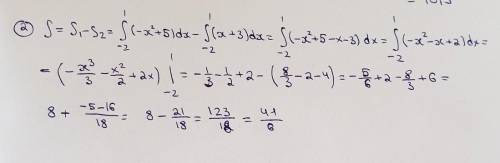 = 1013
② S = S₁-S₂ = ∫₋₂¹(-x²+5)dx - ∫₋₂¹(x+3)dx = ∫₋₂¹(-x²+5-x-3)dx = ∫₋₂¹(-x²-x+2)dx =
= (-x³/3 - x²/2 + 2x) |₋₂¹ = -1/3 - 1/2 + 2 - (8/3 - 2 - 4) = -5/6 + 2 - 8/3 + 6 =
8 + (-5-16)/18 = 8 - 21/18 = 123/18 = 41/6